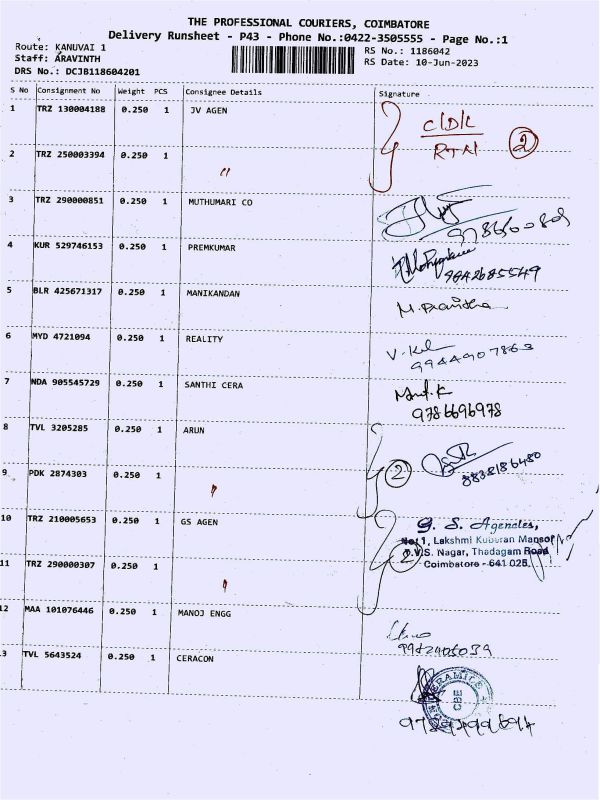 THE PROFESSIONAL COURIERS, COIMBATORE
Delivery Runsheet - P43 - Phone No.:0422-3505555 - Page No.:1
Route: KANUVAI 1
RS No.: 1186042
Staff: ARAVINTH
RS Date: 10-Jun-2023
DRS No.: DCJB118604201
S No Consignment No Weight PCS Consignee Details Signature
1 TRZ 130004188 0.250 1 JV AGEN
RTN 2
2 TRZ 250003394 0.250 1 "
3 TRZ 290000851 0.250 1 MUTHUMARI CO
4 KUR 529746153 0.250 1 PREMKUMAR
9842685549
5 BLR 425671317 0.250 1 MANIKANDAN
M. Pravitha
6 MYD 4721094 0.250 1 REALITY
9944907863
7 NDA 905545729 0.250 1 SANTHI CERA
9786696978
8 TVL 3205285 0.250 1 ARUN
2 8838186480
9 PDK 2874303 0.250 1
10 TRZ 210005653 0.250 1 GS AGEN
G. S. Agencies,
No: 1, Lakshmi Kuberan Mansion
O.V.S. Nagar, Thadagam Road
2 Coimbatore - 641 025.
11 TRZ 290000307 0.250 1
12 MAA 101076446 0.250 1 MANOJ ENGG
3 TVL 5643524 0.250 1 CERACON
CBE